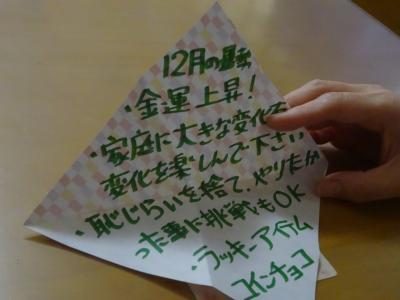 12月の運勢
・金運上昇!
・家庭に大きな変化を
変化を楽しんで下さい
・恥じらいを捨て、やりたか
った事に挑戦もOK
・ラッキーアイテム
コインチョコ